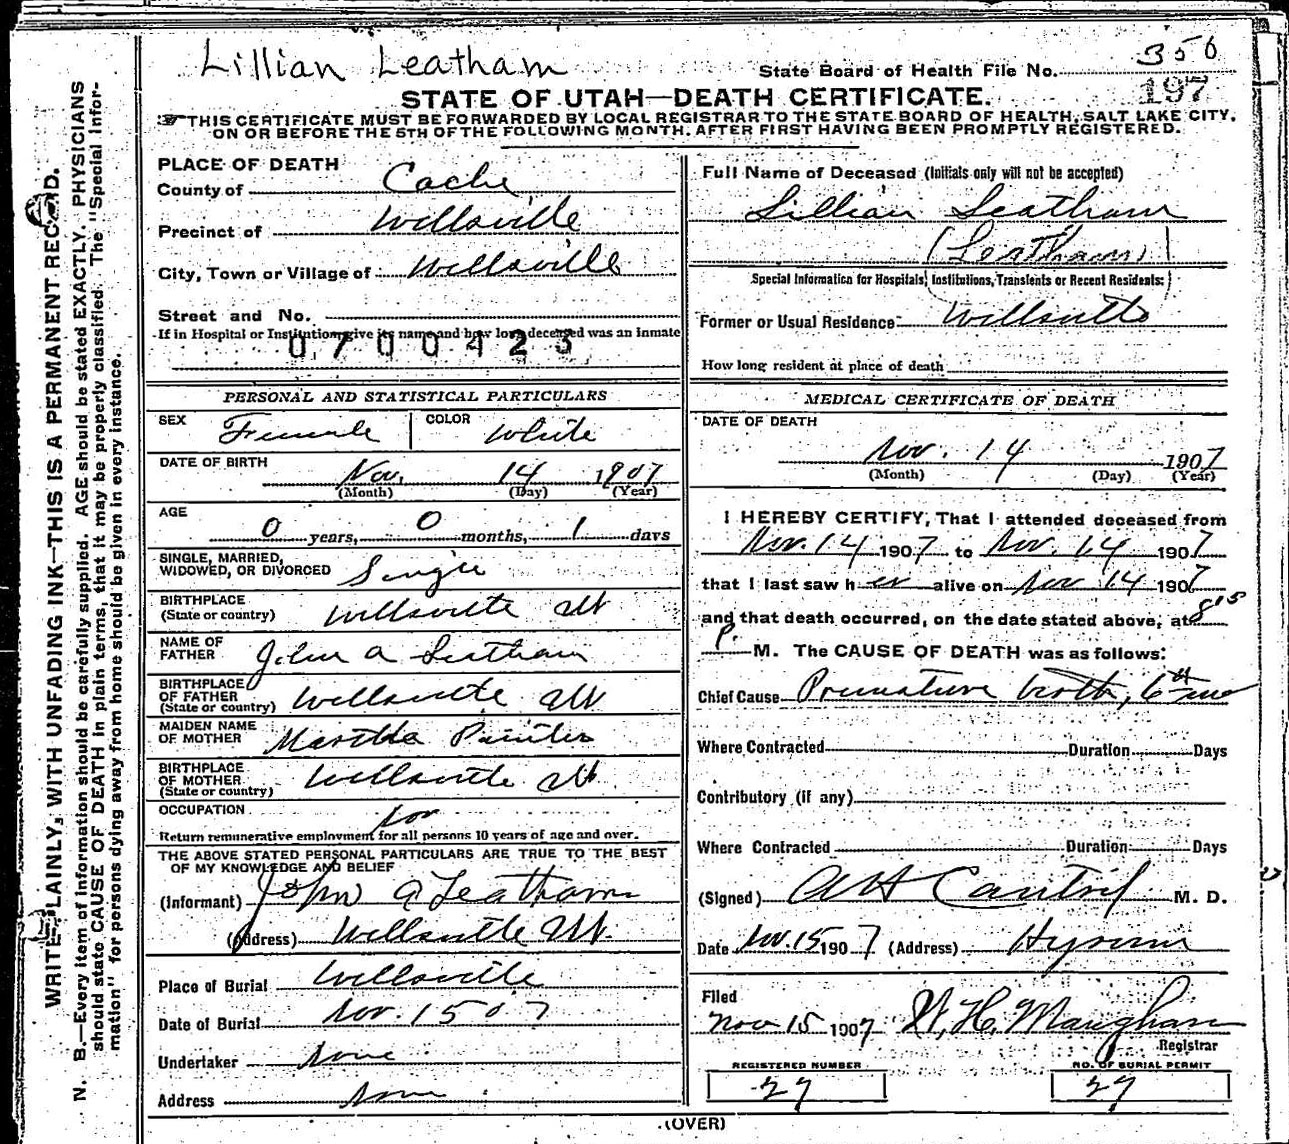 Lillian Leatham
State Board of Health File No. 356
197
STATE OF UTAH—DEATH CERTIFICATE.
THIS CERTIFICATE MUST BE FORWARDED BY LOCAL REGISTRAR TO THE STATE BOARD OF HEALTH, SALT LAKE CITY,
ON OR BEFORE THE 5TH OF THE FOLLOWING MONTH, AFTER FIRST HAVING BEEN PROMPTLY REGISTERED.
WRITE PLAINLY, WITH UNFADING INK—THIS IS A PERMANENT RECORD.
N. B.—Every item of information should be carefully supplied. AGE should be stated EXACTLY. PHYSICIANS
should state CAUSE OF DEATH in plain terms, that it may be properly classified. The "Special Infor-
mation" for persons dying away from home should be given in every instance.
PLACE OF DEATH
County of Cache
Precinct of Wellsville
City, Town or Village of Wellsville
Street and No.
If in Hospital or Institution give its name and how long deceased was an inmate
0700423
PERSONAL AND STATISTICAL PARTICULARS
SEX Female COLOR White
DATE OF BIRTH Nov. 14 1907
(Month) (Day) (Year)
AGE
0 years, 0 months, 1 days
SINGLE, MARRIED,
WIDOWED, OR DIVORCED Single
BIRTHPLACE
(State or country) Wellsville Ut
NAME OF
FATHER John A Leatham
BIRTHPLACE
OF FATHER
(State or country) Wellsville Ut
MAIDEN NAME
OF MOTHER Martha
BIRTHPLACE
OF MOTHER
(State or country) Wellsville Ut
OCCUPATION
Return remunerative employment for all persons 10 years of age and over.
THE ABOVE STATED PERSONAL PARTICULARS ARE TRUE TO THE BEST
OF MY KNOWLEDGE AND BELIEF
(Informant) John A Leatham
(Address) Wellsville Ut.
Place of Burial Wellsville
Date of Burial Nov. 15 07
Undertaker None
Address None
Full Name of Deceased (Initials only will not be accepted)
Lillian Leatham
(Leatham)
Special Information for Hospitals, Institutions, Transients or Recent Residents:
Former or Usual Residence Wellsville
How long resident at place of death
MEDICAL CERTIFICATE OF DEATH
DATE OF DEATH
Nov. 14 1907
(Month) (Day) (Year)
I HEREBY CERTIFY, That I attended deceased from
Nov. 14 1907 to Nov. 14 1907
that I last saw her alive on Nov 14 1907
and that death occurred, on the date stated above, at 8 15
P. M. The CAUSE OF DEATH was as follows:
Chief Cause Premature birth, 6th mo
Where Contracted Duration Days
Contributory (if any)
Where Contracted Duration Days
(Signed) M. D.
Date Nov. 15 1907 (Address) Hyrum
Filed
Nov 15 1907 W. H. Maughan
Registrar
REGISTERED NUMBER NO. OF BURIAL PERMIT
27 27
(OVER)